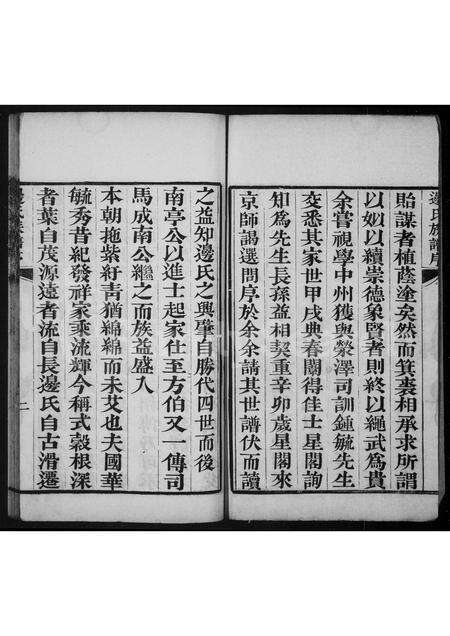 邊氏族譜序
貽謀者植蔭塗矣然而箕裘相承求所謂
以姒以續崇德象賢者則終以繩武為貴
余嘗視學中州獲與滎澤司訓鍾毓先生
交悉其家世甲戌典春闈得佳士星閣詢
知為先生長孫益相契重辛卯歲星閣來
京師謁選問序於余余請其世譜伏而讀
之益知邊氏之興肇自勝代四世而後
南亭公以進士起家仕至方伯又一傳司
馬成南公繼之而族益盛入
本朝拖紫紆青猶綿綿而未艾也夫國華
毓秀昔紀發祥家乘流輝今稱式穀根深
者葉自茂源遠者流自長邊氏自古滑遷
二